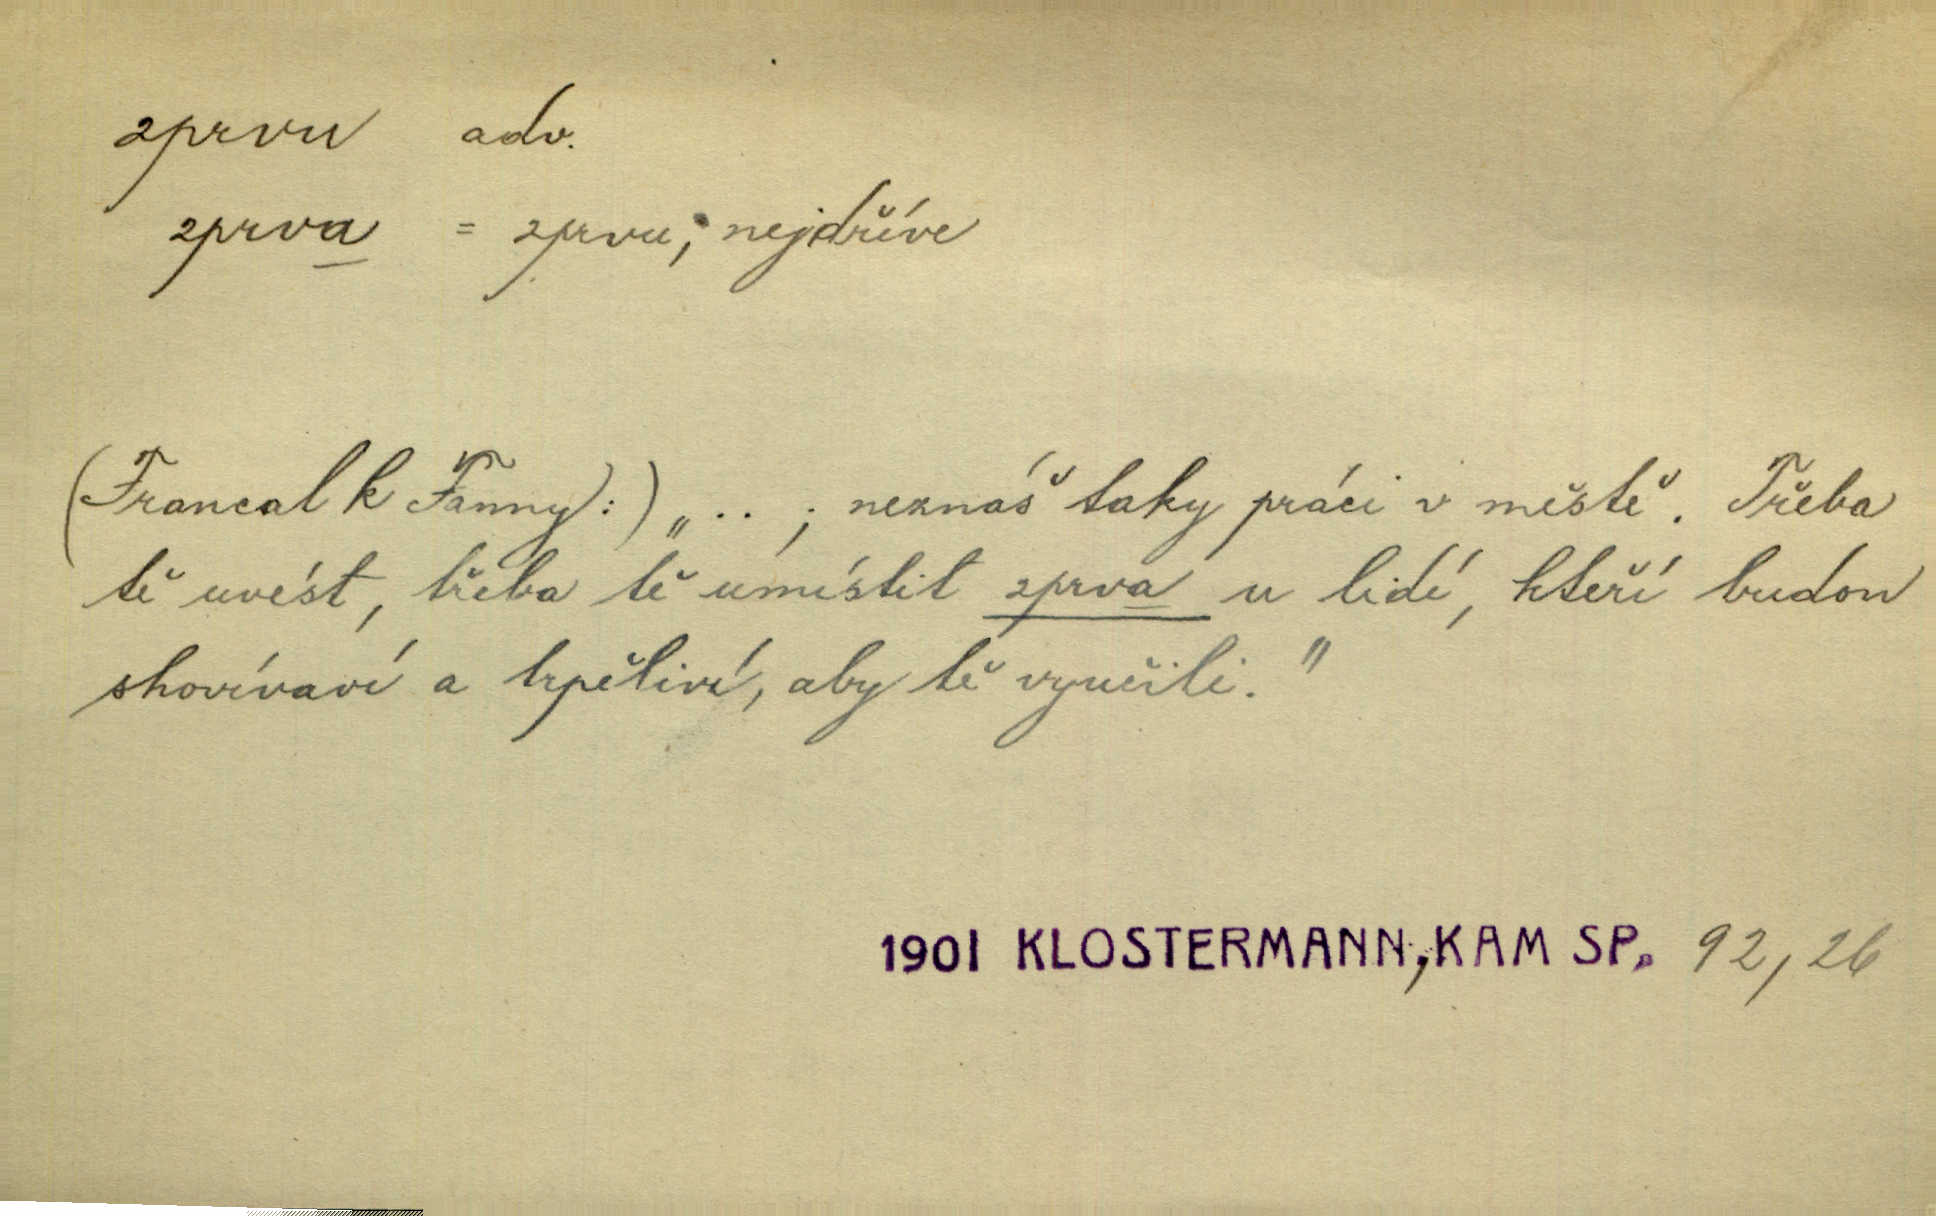 zprvu adv.
zprva = zprvu; nejdříve
(Francal k Fanny):) „ . . ; neznáš taky práci v městě. Třeba
tě uvést, třeba tě umístit zprva u lidí, kteří budou
shovívaví a trpěliví, aby tě vyučili."
1901 KLOSTERMANN, KAM SP. 92, 26